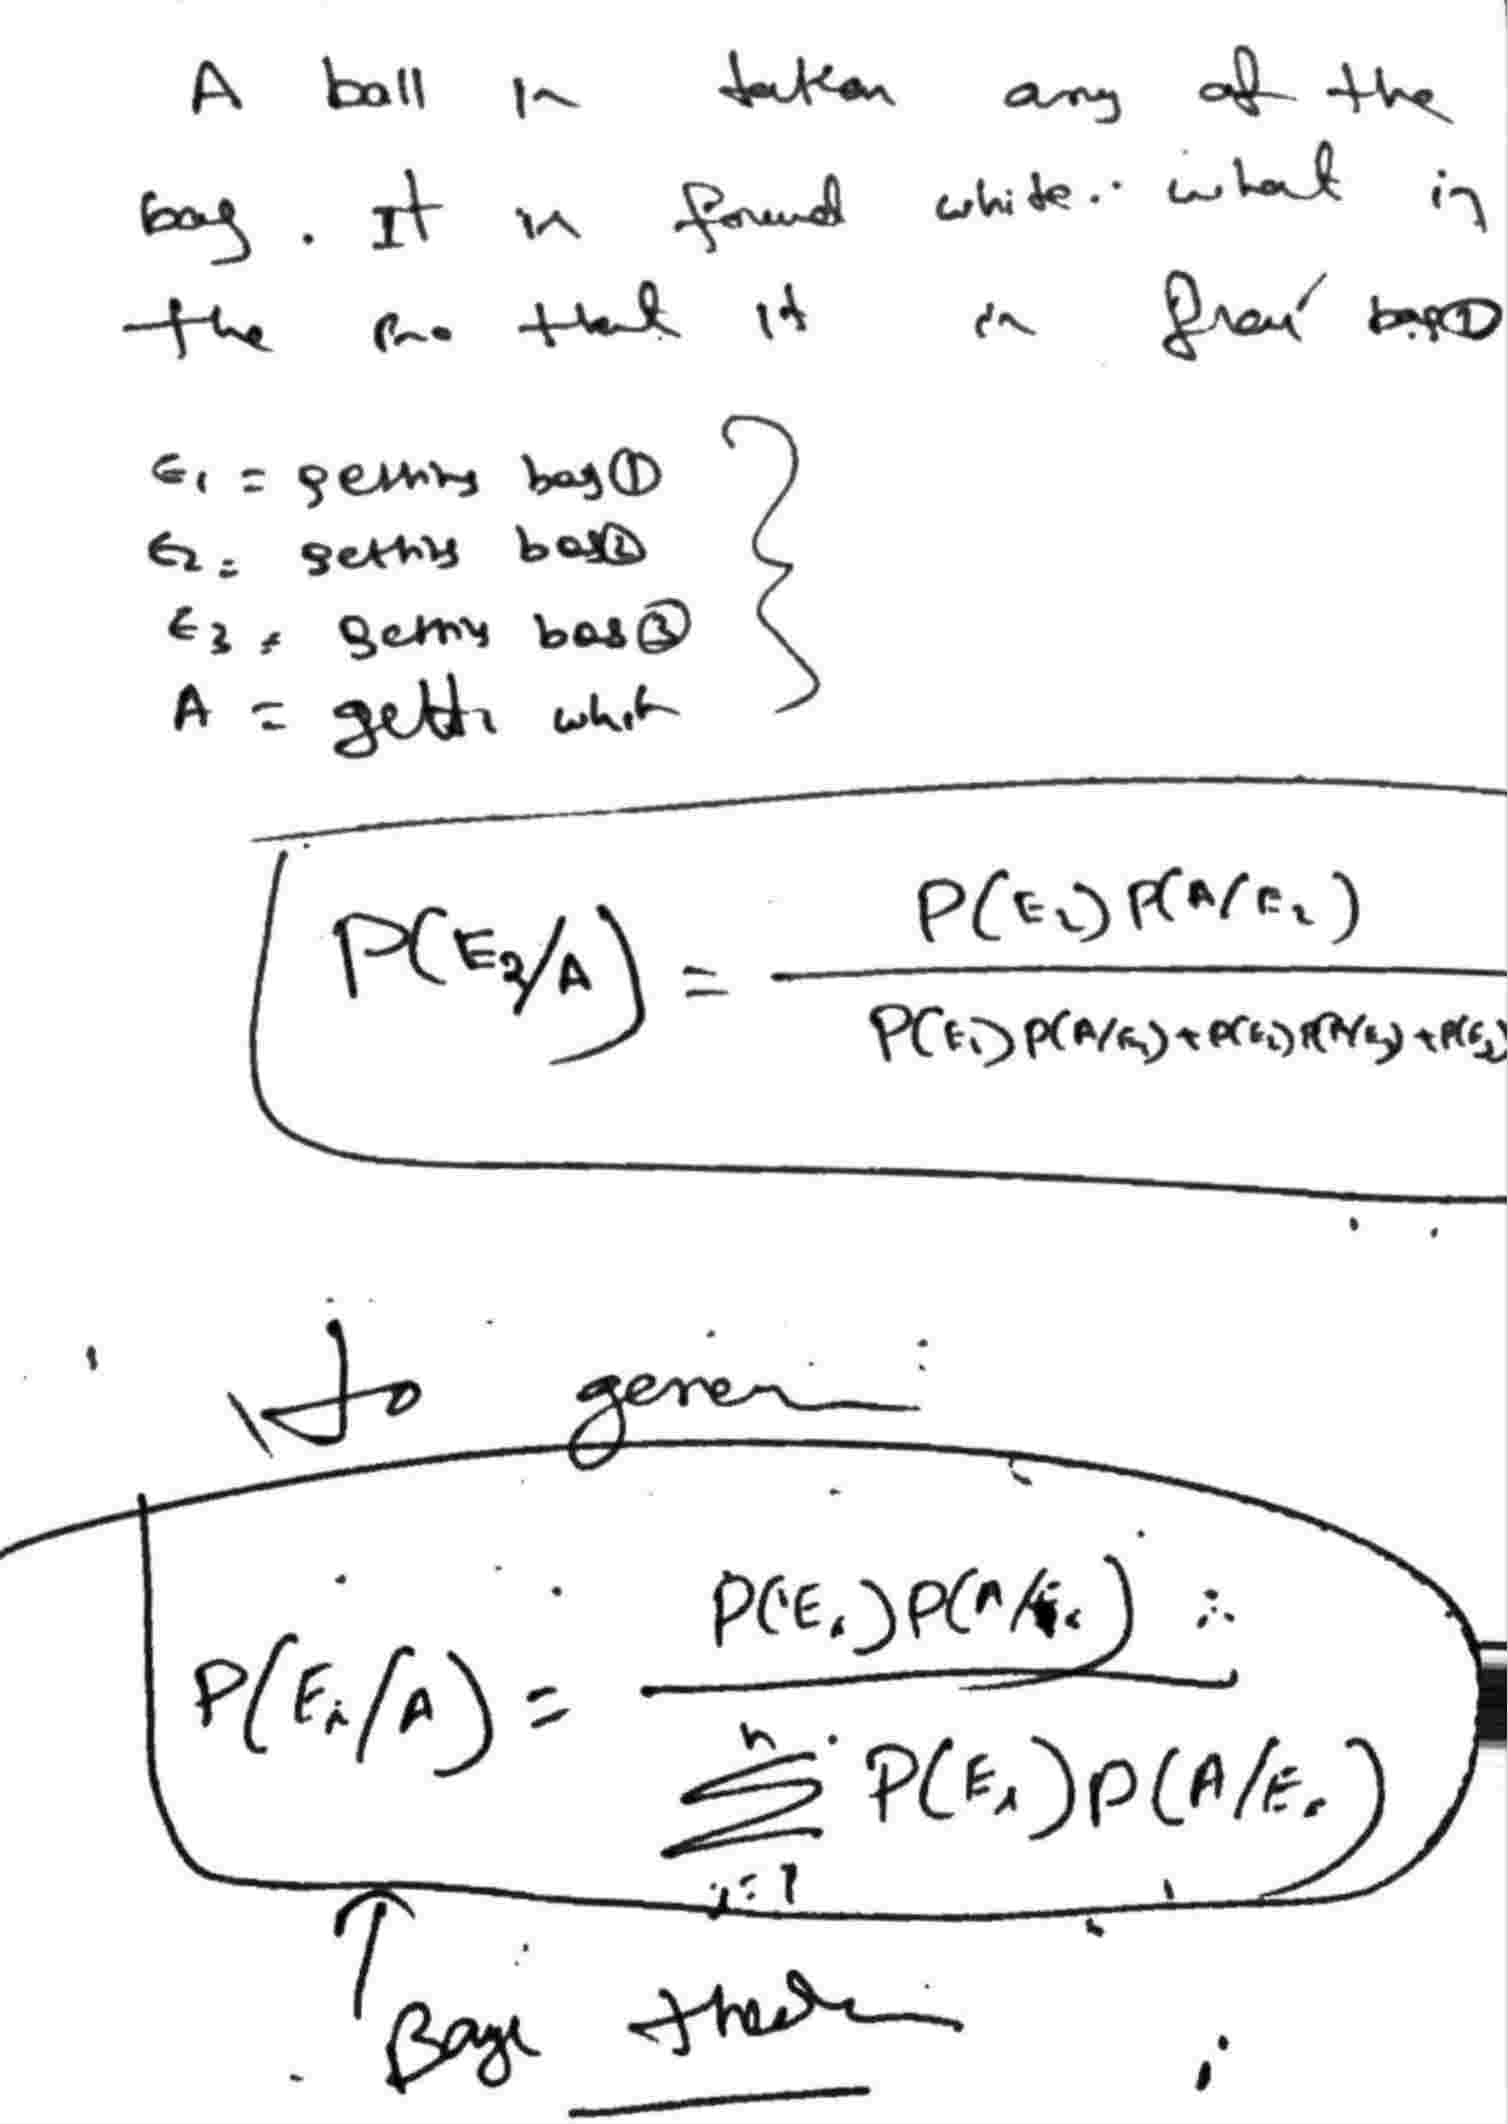 A ball is taken any of the
bag. It is found white. what is
the pro that it is from bag ①
E₁ = getting bag ①
E₂ = getting bag ②
E₃ = getting bag ③
A = getti whit
P(E₂/A) = P(E₂) P(A/E₂)
P(E₁) P(A/E₁) + P(E₂) P(A/E₂) + P(E₃)
gener
P(Eᵢ/A) = P(Eᵢ) P(A/Eᵢ)
n
Σ P(Eᵢ) P(A/Eᵢ)
i=1
Baye